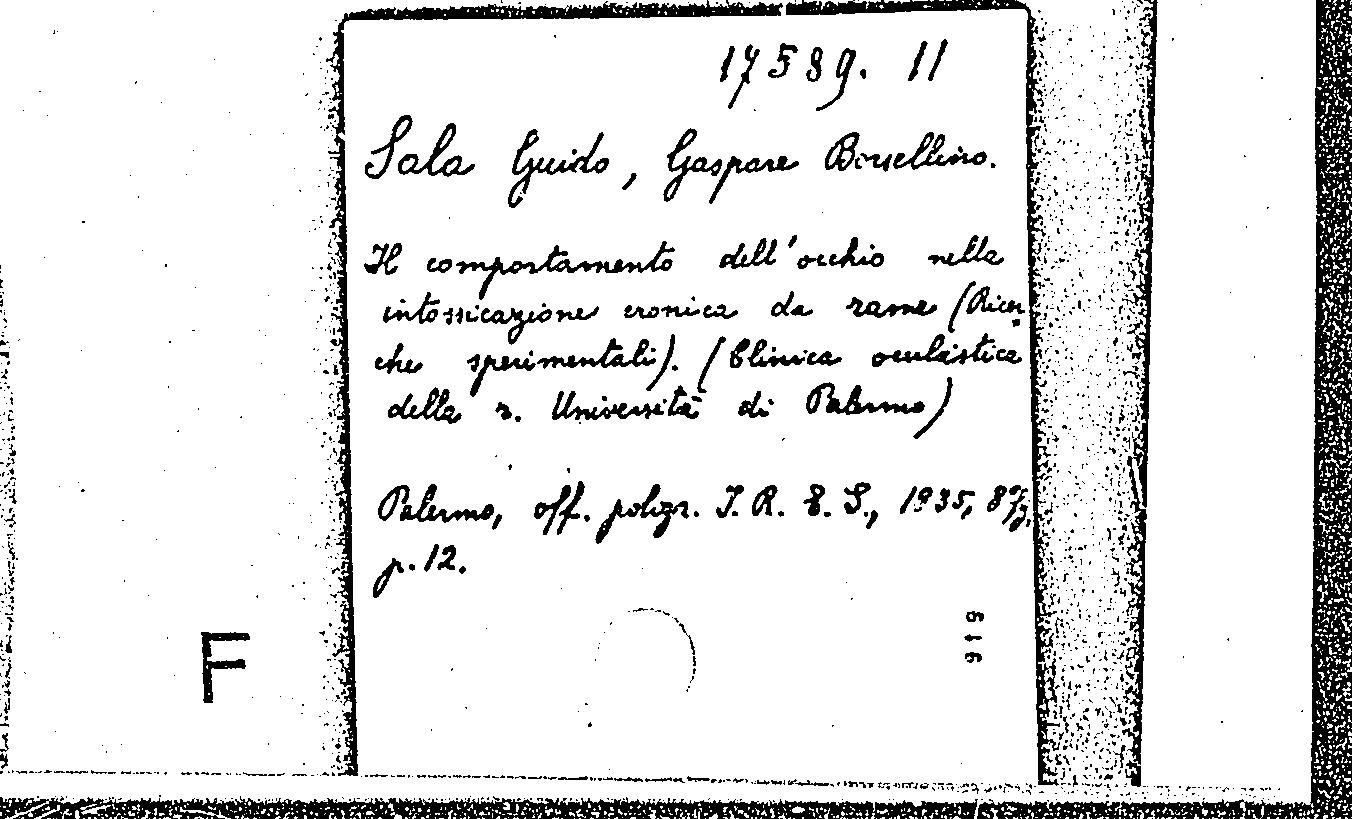 17589. 11
Sala Guido, Gaspare Borsellino.
Il comportamento dell'occhio nella
intossicazione cronica da rame (Ricer
che sperimentali). (Clinica oculistica
della r. Università di Palermo)
Palermo, off. poligr. I. R. E. S., 1935, 8º/g.
p. 12.
F
919